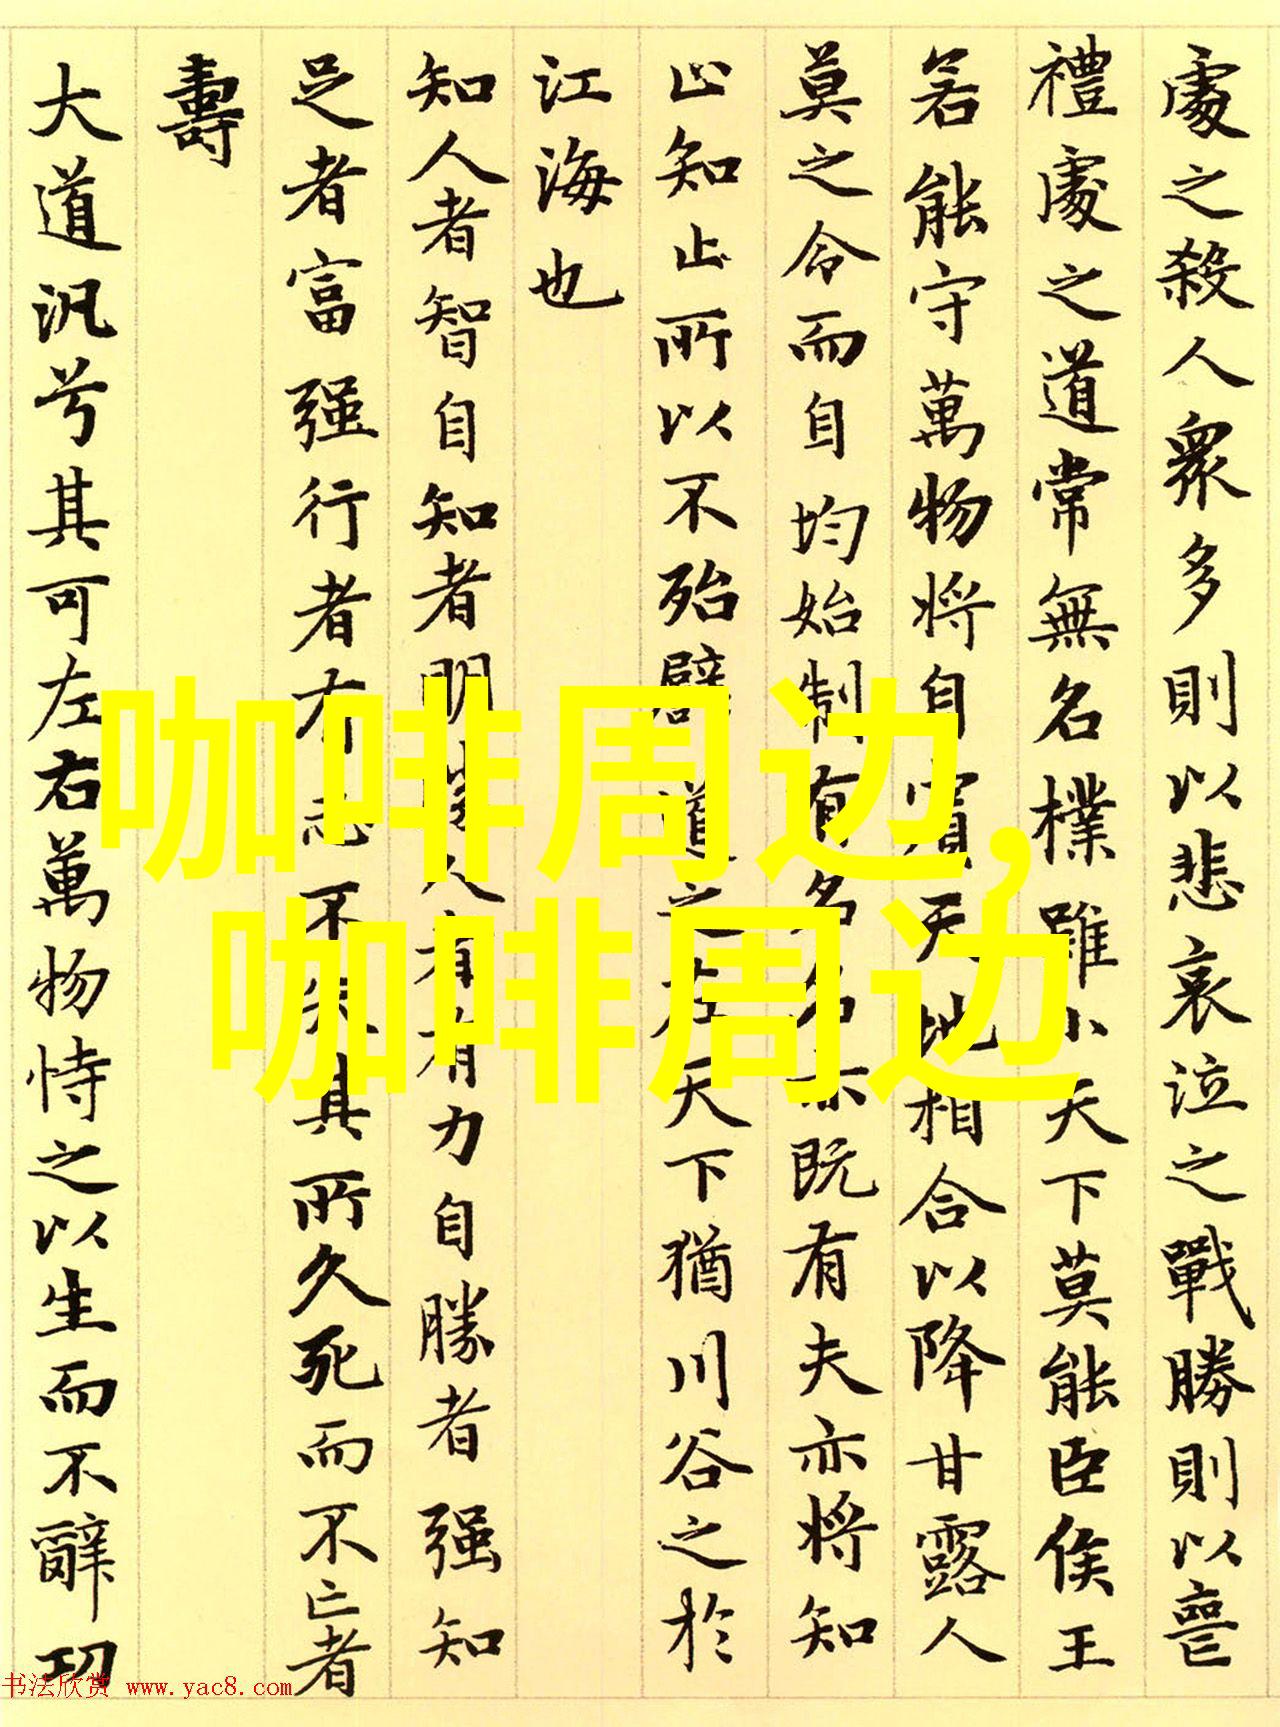 處之殺人衆多則以悲哀泣之戰勝則以喪
禮處之道常無名樸雖小天下莫能臣侯王
若能守萬物將自賓天地相合以降甘露人
莫之令而自均始制有名名亦既有夫亦將知
止知止所以不殆譬道之在天下猶川谷之於
江海也
知人者智自知者明勝人者有力自勝者强知
足者富强行者有志不失其所久死而不亡者
壽
大道汎兮其可左右萬物恃之以生而不辭功
咖啡周边,
咖啡周边
书法欣赏 www.yac8.com